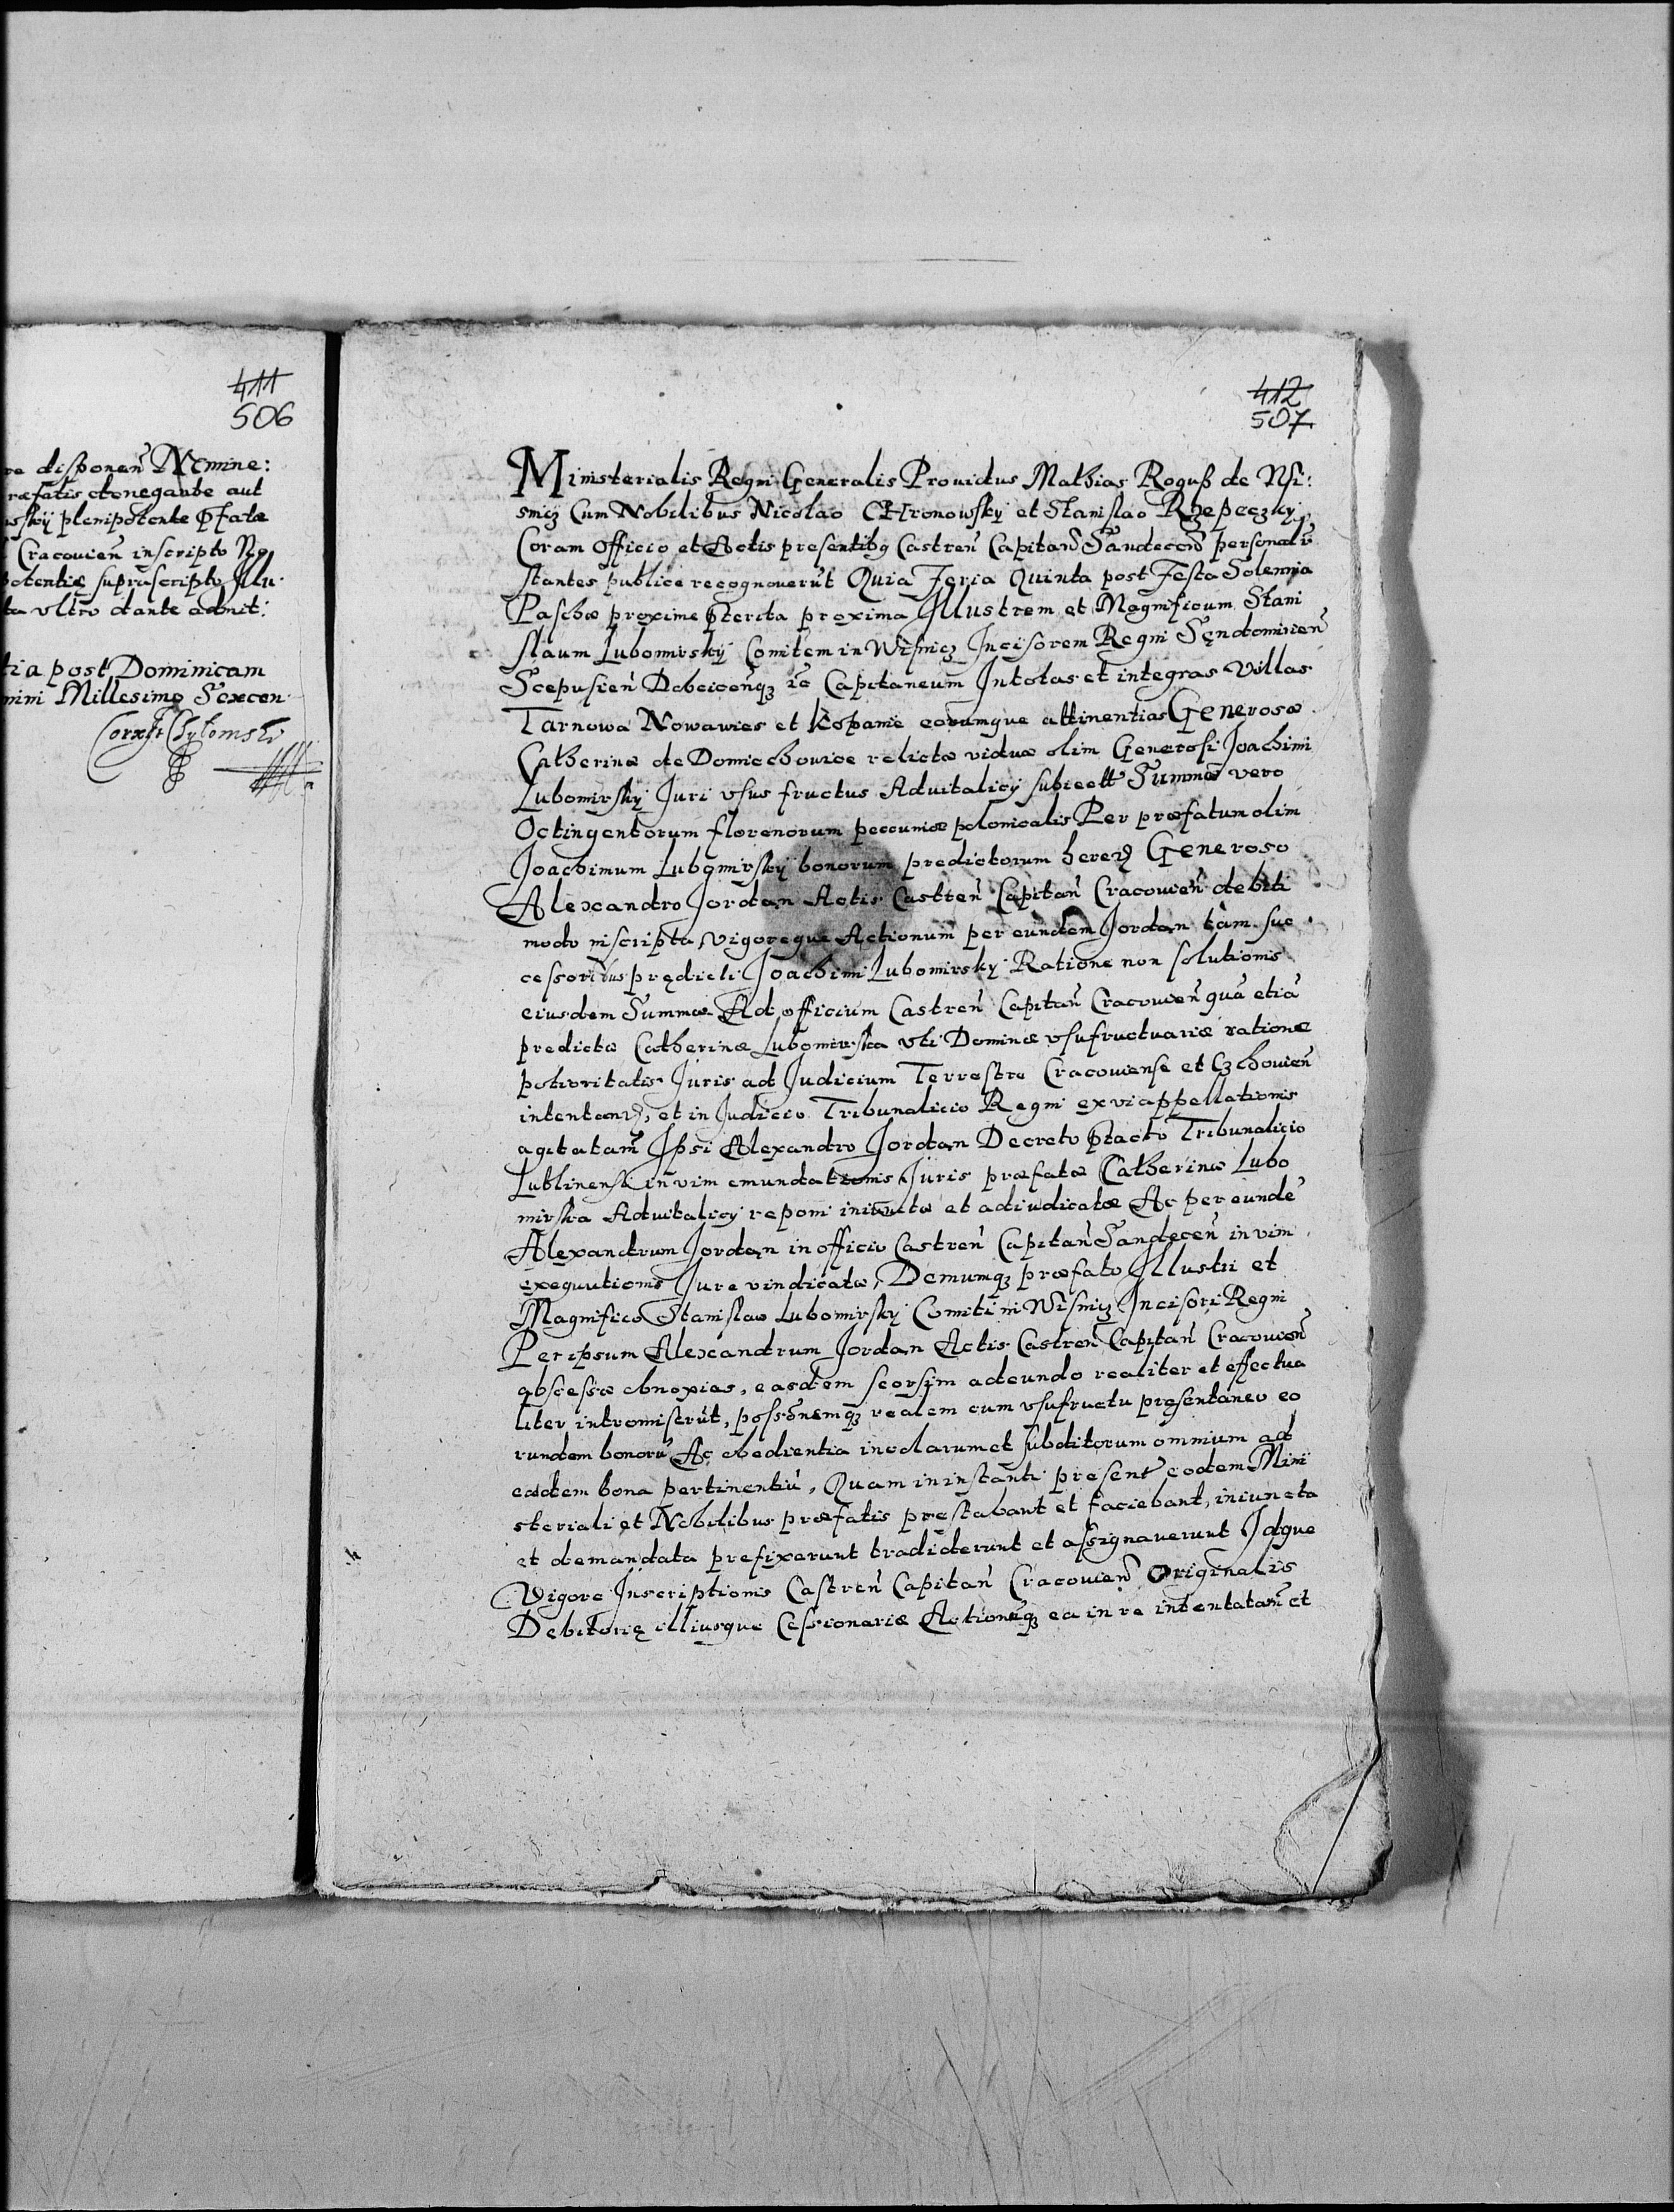 411
506
disponeñ Nemine:
ræfatis denegante aut
plenipotente
Cracovieñ inscripto No
potentiæ suprascripto Illu
ta vltro dante admit:
tia post Dominicam
mini Millesimo Sexcen
412
507
Ministerialis Regni Generalis Prouidus Mathias Roguß de Nsi:
smicz Cum Nobilibus Nicolao CHronowsky et Stanislao Rzepeczky
Coram Officio et Actis presentibq Castreñ Capitañ Sandeceñ personalr
stantes publice recognoverūt Quia Feria Quinta post Festa Solennia
Paschæ proxime pterita proxima Illustrem et Magnificum Stani
slaum Lubomirskÿ Comitem in Wisnicz Incisorem Regni Sendomirieñ
Scepusieñ Dobciceñqz Capitaneum In totas et integras Villas
Tarnowa Nowawies et Kopanie earumque attinentias Generosæ
Catherinæ de Domiechowice relictæ viduæ olim Generosi Joachimi
Lubomirskÿ Juri vsus fructus Aduitalicÿ subiectt Summæ vero
Octingentorum florenorum pecuniæ polonicalis Per præfatum olim
Joachimum Lubomirskÿ bonorum predictorum hered Generoso
Alexandro Jordan Actis Castreñ Capitañ Cracovieñ debiti
modo inscripta, vigoreque Actionum per eundem Jordan tàm suc
cessoribus prędicti Joachimi Lubomirsky Ratione non solutionis
eiusdem Summæ Ad officium Castreñ Capitañ Cracovieñ quā etiā
predictæ Catherinæ Lubomirska vti Dominæ vsufructuariæ ratione
potioritatis Juris ad Judicium Terrestre Cracoviense et Czchovieñ
et in Judicio Tribunalicio Regni ex vi appellationis
agitatam̃ Ipsi Alexandro Jordan Decreto ptacto Tribunalicio
Lublinensi in vim emundationis Juris præfatæ Catherinæ Lubo
mirska Aduitalicÿ reponi iniunctæ et adiudicatæ Ac per eundē
Alexandrum Jordan in officio Castreñ Capitañ Sandeceñ in vim
exequutionis Jure vindicatæ, Demumqz præfato Illustri et
Magnifico Stanislao Lubomirskÿ Comiti in Wisnicz Incisori Regni
Per ipsum Alexandrum Jordan Actis Castreñ Capitañ Cracovieñ
obnoxias, easdem seorsim adeundo realiter et effectua
liter intromiserūt, possōnemqz realem cum vsufructu pręsentaneo eo
rundem bonorū Ac obedientia incolarum et subditorum omnium ad
eadem bona pertinentiū, Quam in instanti present eodem Mini
steriali et Nobilibus præfatis præstabant et faciebant, iniuncta
et demandata prefixerunt tradiderunt et assignauerunt Idque
Vigore Inscriptionis Castreñ Capitañ Cracovieñ Originalis
Debitorię illiusque Cessionariæ Actionūqz ea in re intentatam̃ et